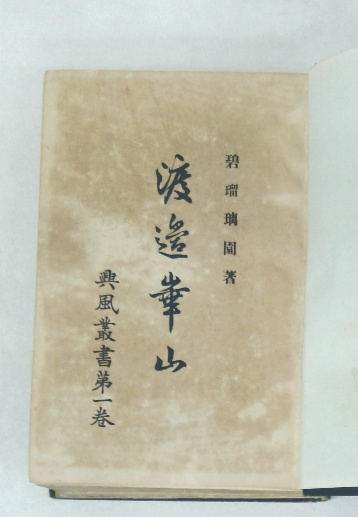 碧瑠璃園著
渡邉崋山
興風叢書第一卷